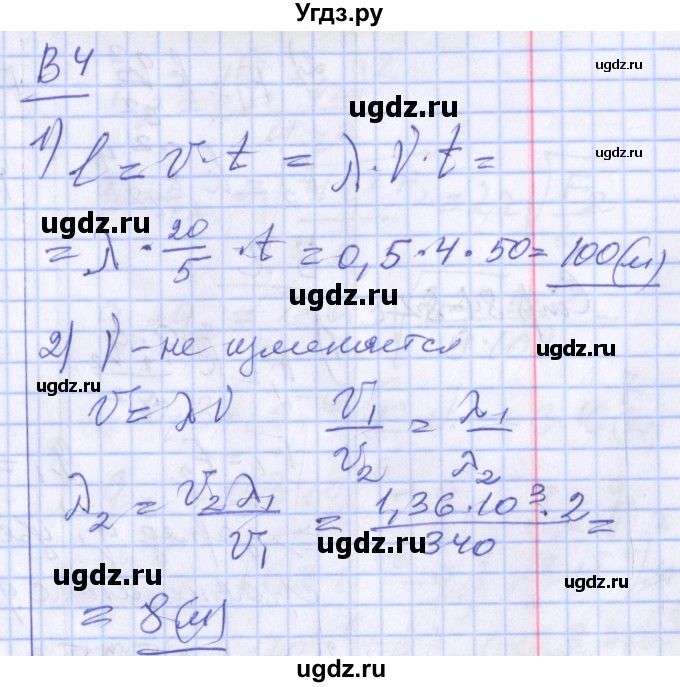 Угдз.ру
В4
ugdz.ru
ugdz.ru
1) l = v·t = λ·ν·t =
ugdz.ru
ugdz.ru
= λ · 20/5 · t = 0,5·4·50 = 100(м)
ugdz.ru
ugdz.ru
2) ν - не изменяется
ugdz.ru
ugdz.ru
v = λν v₁/v₂ = λ₁/λ₂
ugdz.ru
λ₂ = v₂λ₁/v₁ = 1,36·10³·2/340 =
ugdz.ru
ugdz.ru
ugdz.ru
= 8(м)
ugdz.ru
ugdz.ru